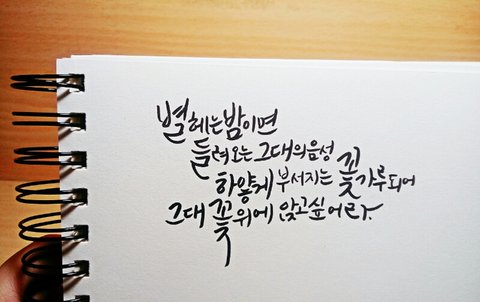 별 헤는 밤이면
들려오는 그대의 음성
하얗게 부서지는 꽃가루 되어
그대 꽃 위에 앉고 싶어라.